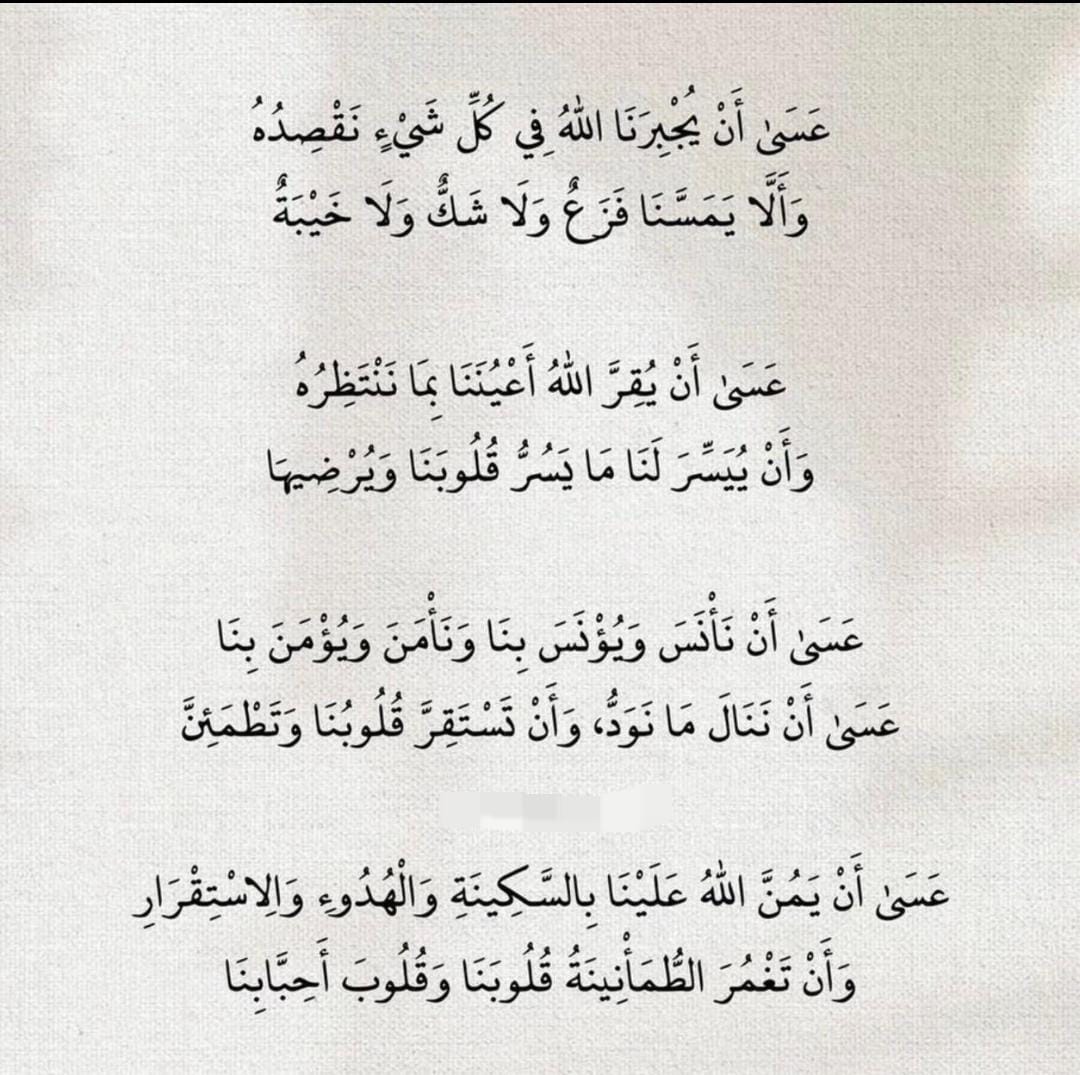 عَسَىٰ أَنْ يُجْبِرَنَا اللهُ فِي كُلِّ شَيْءٍ نَقْصِدُهُ
وَأَلَّا يَمَسَّنَا فَزَعٌ وَلَا شَكٌّ وَلَا خَيْبَةٌ
عَسَىٰ أَنْ يُقِرَّ اللهُ أَعْيُنَنَا بِمَا نَنْتَظِرُهُ
وَأَنْ يُيَسِّرَ لَنَا مَا يَسُرُّ قُلُوبَنَا وَيُرْضِيهَا
عَسَىٰ أَنْ نَأْنَسَ وَيُؤْنَسَ بِنَا وَنَأْمَنَ وَيُؤْمَنَ بِنَا
عَسَىٰ أَنْ نَنَالَ مَا نَوَدُّ، وَأَنْ تَسْتَقِرَّ قُلُوبُنَا وَتَطْمَئِنَّ
عَسَىٰ أَنْ يَمُنَّ اللهُ عَلَيْنَا بِالسَّكِينَةِ وَالْهُدُوءِ وَالِاسْتِقْرَارِ
وَأَنْ تَغْمُرَ الطُّمَأْنِينَةُ قُلُوبَنَا وَقُلُوبَ أَحِبَّابِنَا